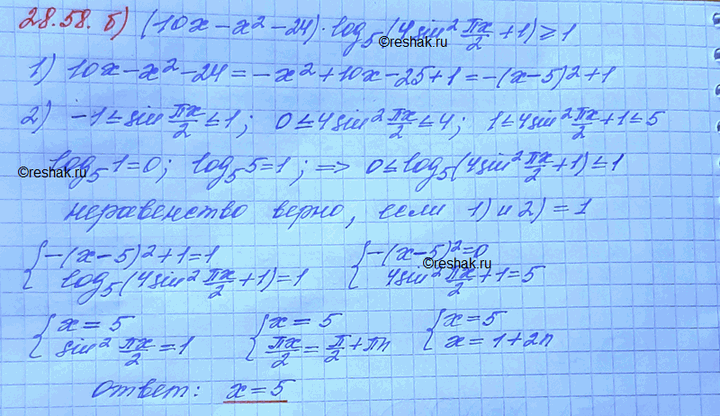 28.58. б) (10x - x² - 24) · log₅(4sin² πx/2 + 1) ≥ 1
©reshak.ru
1) 10x - x² - 24 = -x² + 10x - 25 + 1 = -(x-5)² + 1
2) -1 ≤ sin πx/2 ≤ 1; 0 ≤ 4sin² πx/2 ≤ 4; 1 ≤ 4sin² πx/2 + 1 ≤ 5
log₅1 = 0; log₅5 = 1; => 0 ≤ log₅(4sin² πx/2 + 1) ≤ 1
©reshak.ru
неравенство верно, если 1) и 2) = 1
{ -(x-5)² + 1 = 1 { -(x-5)² = 0
©reshak.ru
log₅(4sin² πx/2 + 1) = 1 4sin² πx/2 + 1 = 5
{ x = 5 { x = 5 { x = 5
sin² πx/2 = 1 πx/2 = π/2 + πn x = 1 + 2n
ответ: x = 5